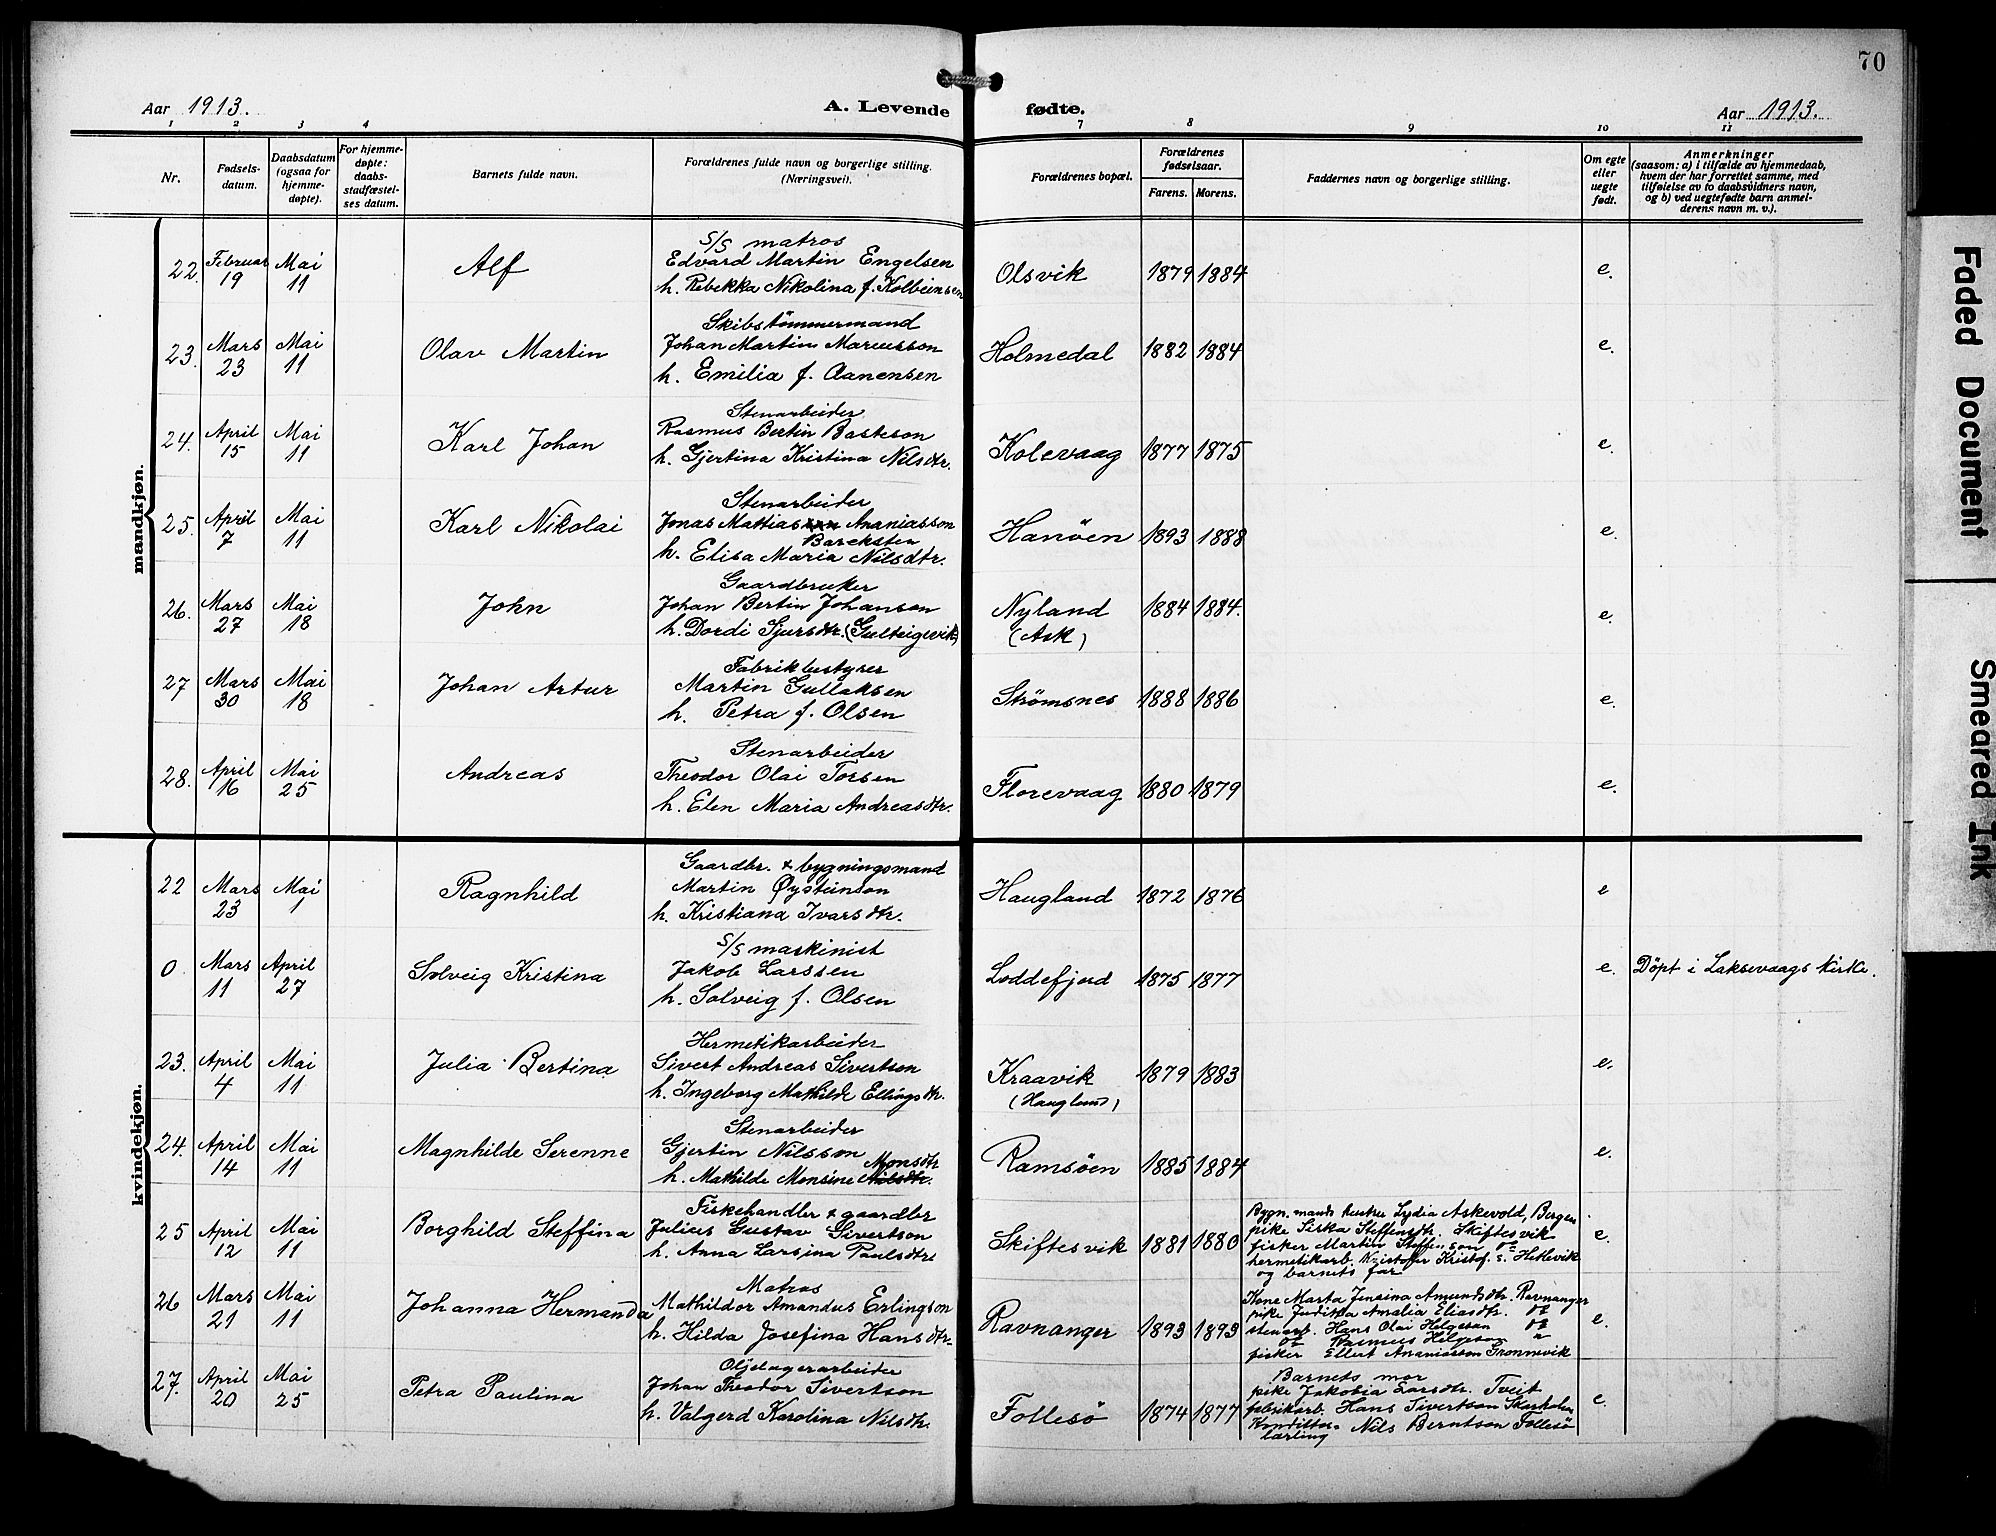 70
Aar 1913.
A. Levende fødte.
Aar 1913.
1 2 3 4 7 8 9 10 11
Nr.
Fødsels-
datum.
Daabsdatum
(ogsaa for
hjemme-
døpte).
For hjemme-
døpte:
daabs-
stadfæstel-
ses datum.
Barnets fulde navn.
Forældrenes fulde navn og borgerlige stilling.
(Næringsvei).
Forældrenes bopæl.
Forældrenes
fødselsaar.
Farens. Morens.
Faddernes navn og borgerlige stilling.
Om egte
eller
uegte
født.
Anmerkninger
(saasom: a) i tilfælde av hjemmedaab,
hvem der har forrettet samme, med
tilføielse av to daabsvidners navn,
og b) ved uegtefødte barn anmel-
derens navn m. v.).
mandkjøn.
22. Februar 19 Mai 11 Alf
S/S matros
Edvard Martin Engelsen
h. Rebekka Nikolina f. Kolbeinsen
Olsvik 1879 1884 e.
23. Mars 23 Mai 11 Olav Martin
Skibstömmermand
Johan Martin Marcusson
h. Emilia f. Aanensen
Holmedal 1882 1884 e.
24. April 15 Mai 11 Karl Johan
Stenarbeider
Rasmus Bertin Basteson
h. Gjertina Kristina Nilsdtr.
Kolevaag 1877 1875 e.
25. April 7 Mai 11 Karl Nikolai
Stenarbeider
Jonas Mattias Ananiasson
Bareksten
h. Elisa Maria Nilsdtr.
Hanöen 1893 1888 e.
26. Mars 27 Mai 18 John
Gaardbruker
Johan Bertin Johanson
h. Dordi Sjursdtr.
Nyland
(Ask)
1884 1884. e.
27 Mars 30 Mai 18 Johan Artur
Fabrikbestyrer
Martin Gullaksen
h. Petra f. Olsen
Strømsnes 1888 1886 e.
28. April 16 Mai 25 Andreas
Stenarbeider
Theodor Olai Torsen
h. Elen Maria Andreasdtr.
Florevaag 1880 1879 e.
kvindekjøn.
22 Mars 23 Mai 1 Ragnhild
Gaardbr. & bygningsmand
Martin Øysteinson
h. Kristiana Ivarsdtr.
Haugland 1872 1876 e
0 Mars 11 April 27 Solveig Kristina
S/S maskinist
Jakob Larssen
h. Solveig f. Olsen
Loddefjord 1875 1877 e. Döpt i Laksevaags Kirke.
23. April 4 Mai 11 Julia Bertina
Hermetikarbeider
Sivert Andreas Sivertson
h. Ingeborg Mathilde Ellingsdtr.
Kraavik
(Haugland)
1879 1883 e.
24. April 14 Mai 11 Magnhilde Serenne
Stenarbeider
Gjertin Nilsson
Monsdtr
h. Mathilde Monsine Nilsdtr.
Ramsöen 1885 1884 e.
25 April 12 Mai 11 Borghild Steffina
Fiskehandler & gaardbr
Julius Gustav Sivertson
h. Anna Larsina Paulsdtr
Skiftesvik 1881 1880
Bygn.mands hustru Lydia Askevold, Bergen
pike Siska Steffensdtr. Skiftesvik
fisker Martin Steffenson do
hermetikarb. Kristofer Kristof. s. Hetlevik
og barnets far
e.
26 Mars 21 Mai 11 Johanna Hermanda
Matros
Mathildor Amandus Erlingson
h. Hilda Josefina Hansdtr.
Ravnanger 1893 1893
Kone Marta Jensina Amundsdtr. Ravnanger
pike Juditha Amalia Eliasdtr. do
stenarb. Hans Olai Helgeson do
do Rasmus Helgeson "
fisker Ellert Ananiasson Grønnevik
e.
27. April 20 Mai 25 Petra Paulina
Oljelagerarbeider
Johan Theodor Sivertson
h. Valgerd Karolina Nilsdtr.
Follesö 1874 1877
Barnets mor
pike Jakobia Larsdtr. Tveit
fabrikarb. Hans Sivertson
Konditor- Nils Berntson Follesö
lærling
e.
Faded Document
Smeared Ink